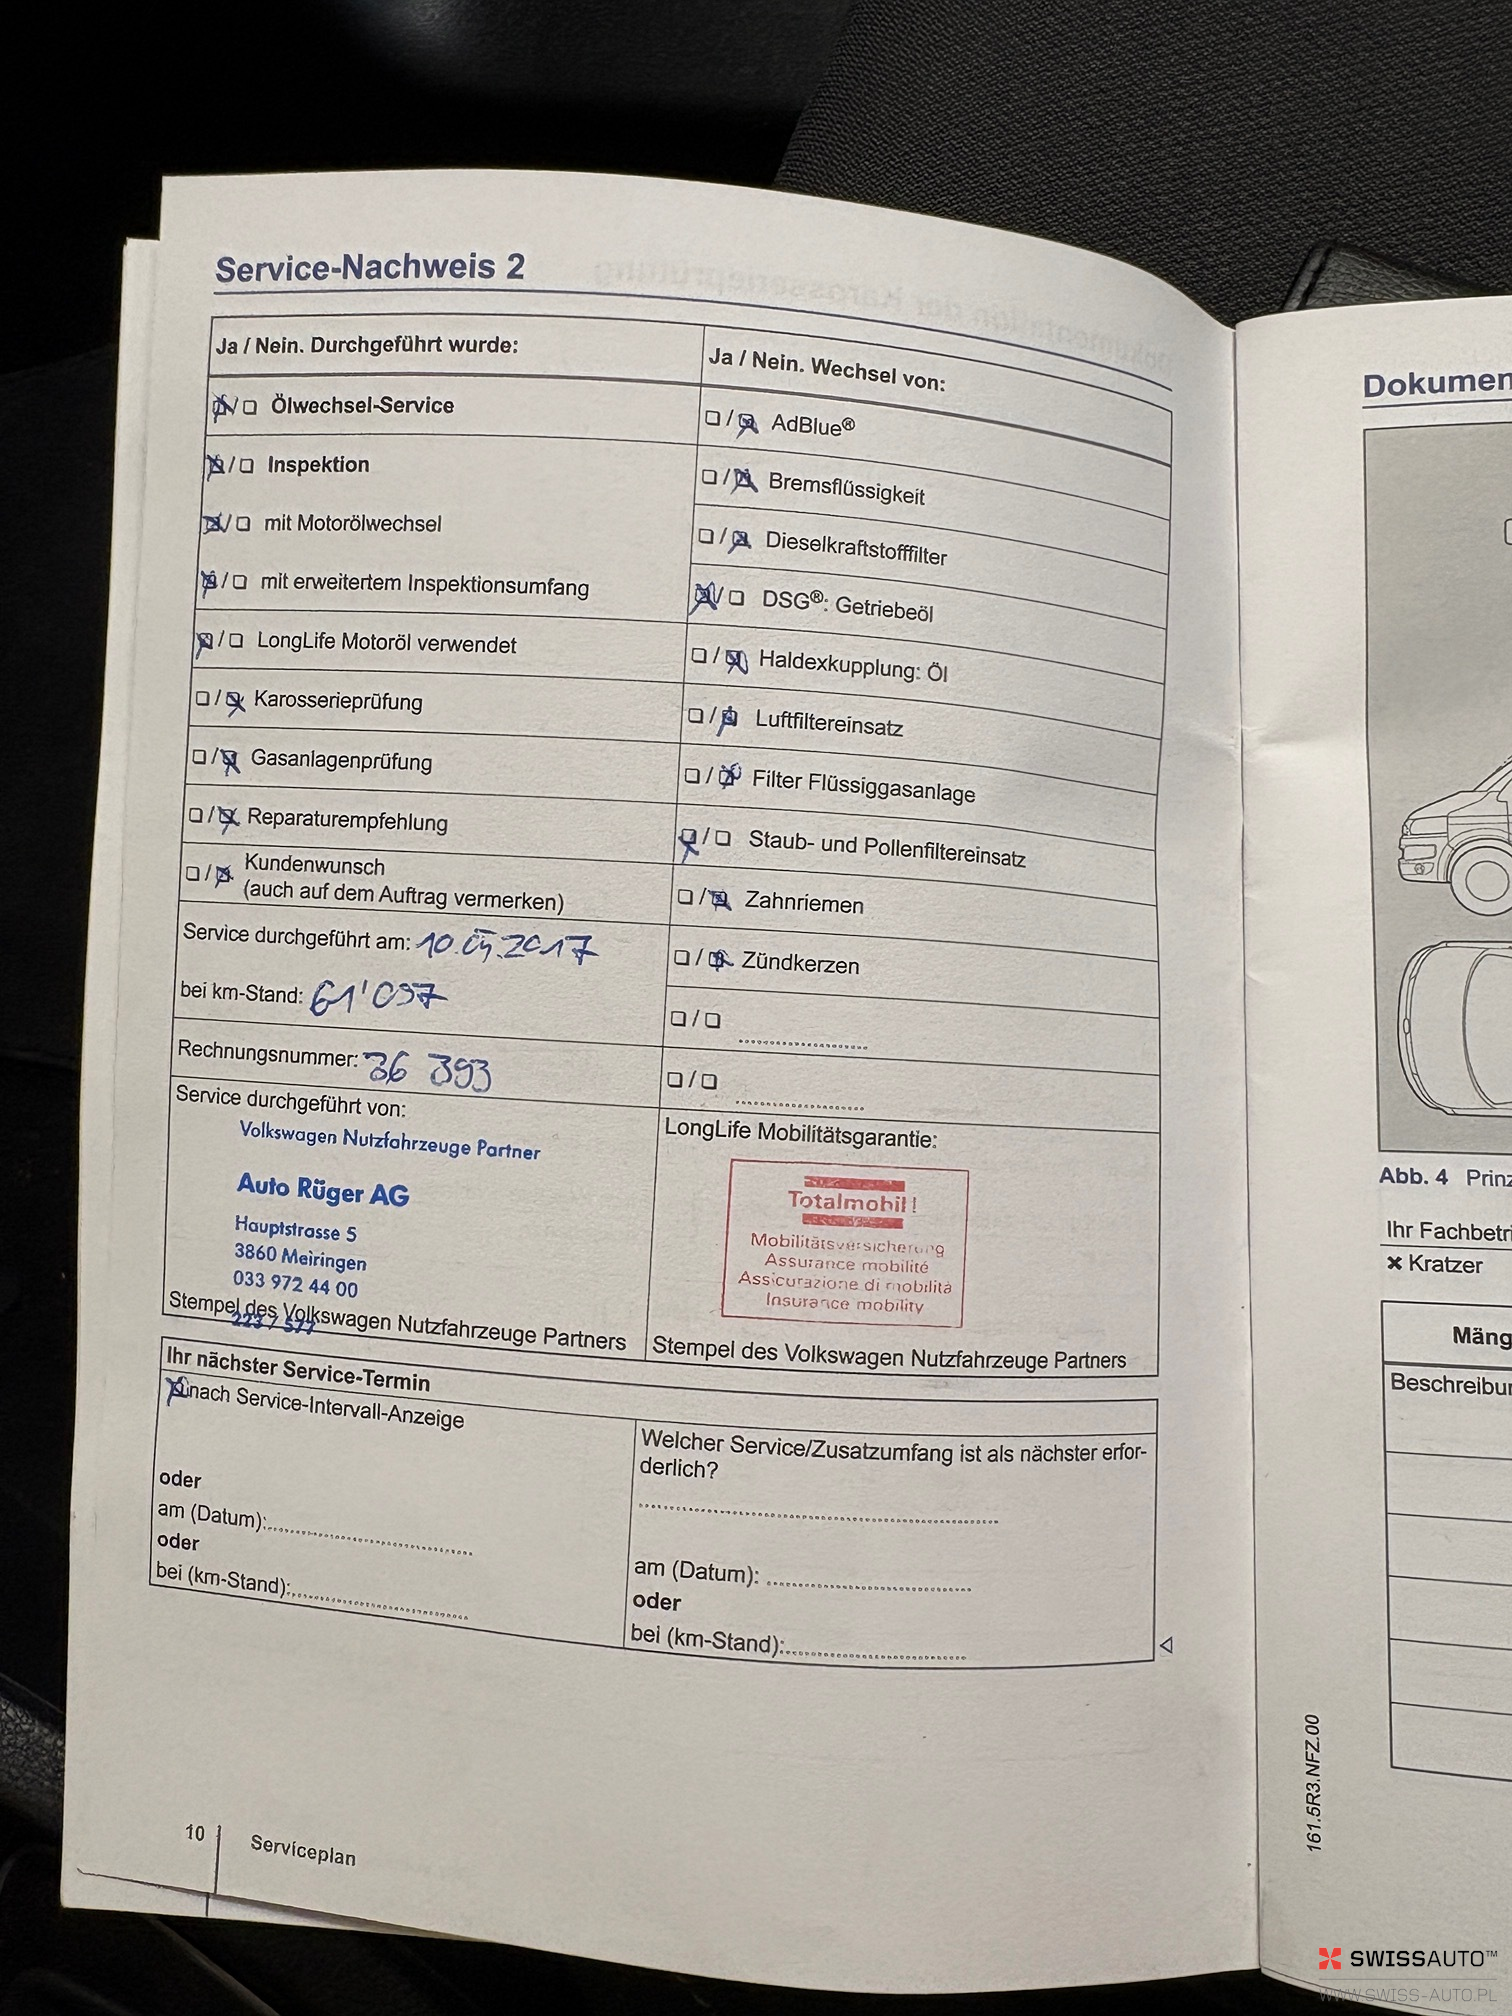 Service-Nachweis 2
Ja / Nein. Durchgeführt wurde:
Ölwechsel-Service
Inspektion
mit Motorölwechsel
mit erweitertem Inspektionsumfang
LongLife Motoröl verwendet
Karosserieprüfung
Gasanlagenprüfung
Reparaturempfehlung
Kundenwunsch
(auch auf dem Auftrag vermerken)
Service durchgeführt am: 10. 2017
bei km-Stand: 61'097
Rechnungsnummer: 36 393
Service durchgeführt von:
Volkswagen Nutzfahrzeuge Partner
Auto Rüger AG
Hauptstrasse 5
3860 Meiringen
033 972 44 00
223 / 577
Stempel des Volkswagen Nutzfahrzeuge Partners
Ja / Nein. Wechsel von:
AdBlue®
Bremsflüssigkeit
Dieselkraftstofffilter
DSG®: Getriebeöl
Haldexkupplung: Öl
Luftfiltereinsatz
Filter Flüssiggasanlage
Staub- und Pollenfiltereinsatz
Zahnriemen
Zündkerzen
LongLife Mobilitätsgarantie:
Totalmobil!
Mobilitätsversicherung
Assurance mobilité
Assicurazione di mobilità
Insurance mobility
Stempel des Volkswagen Nutzfahrzeuge Partners
Ihr nächster Service-Termin
nach Service-Intervall-Anzeige
oder
am (Datum):
oder
bei (km-Stand):
Welcher Service/Zusatzumfang ist als nächster erfor-
derlich?
am (Datum):
oder
bei (km-Stand):
10
Serviceplan
Dokumen
Abb. 4 Prinz
Ihr Fachbetri
Kratzer
Mäng
Beschreibu
161.5R3.NFZ.00
SWISSAUTO™
WWW.SWISS-AUTO.PL